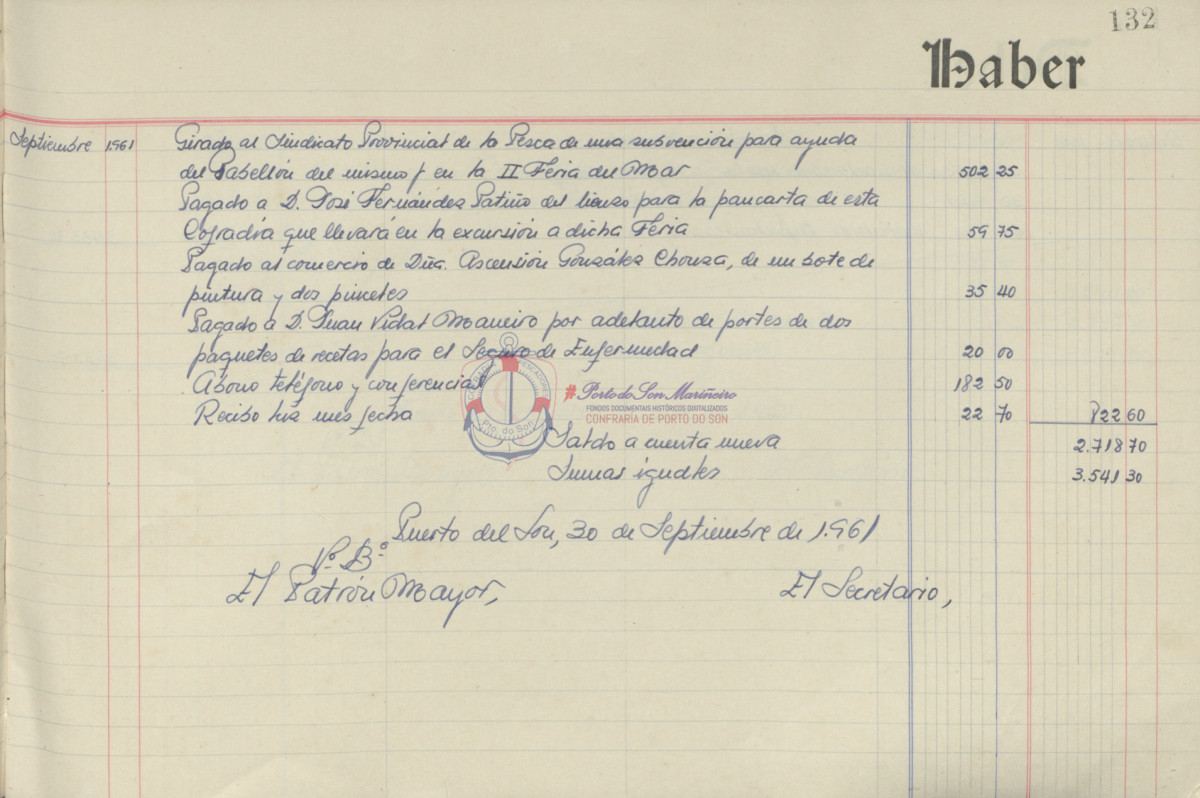 132
Haber
Septiembre 1961 Girado al Sindicato Provincial de la Pesca de una subvención para ayuda
del Pabellón del mismo en la II Feria del Mar 502 25
Pagado a D. José Fernández Patiño del lienzo para la pancarta de esta
Cofradía que llevará en la excursión a dicha Feria 59 75
Pagado al comercio de Dña. Ascensión González Chouza, de un bote de
pintura y dos pinceles 35 40
Pagado a D. Juan Vidal Maneiro por adelanto de portes de dos
paquetes de recetas para el Seguro de Enfermedad 20 00
Abono teléfono y conferencias 182 50
Recibo luz mes fecha 22 70 822 60
Saldo a cuenta nueva 2.718 70
Sumas iguales 3.541 30
Puerto del Son, 30 de Septiembre de 1.961
Vº Bº
El Patrón Mayor, El Secretario,
COFRADÍA PESCADORES
Pto. do Son
#Porto do Son Mariñeiro
FONDOS DOCUMENTAIS HISTÓRICOS DIGITALIZADOS
CONFRARÍA DE PORTO DO SON